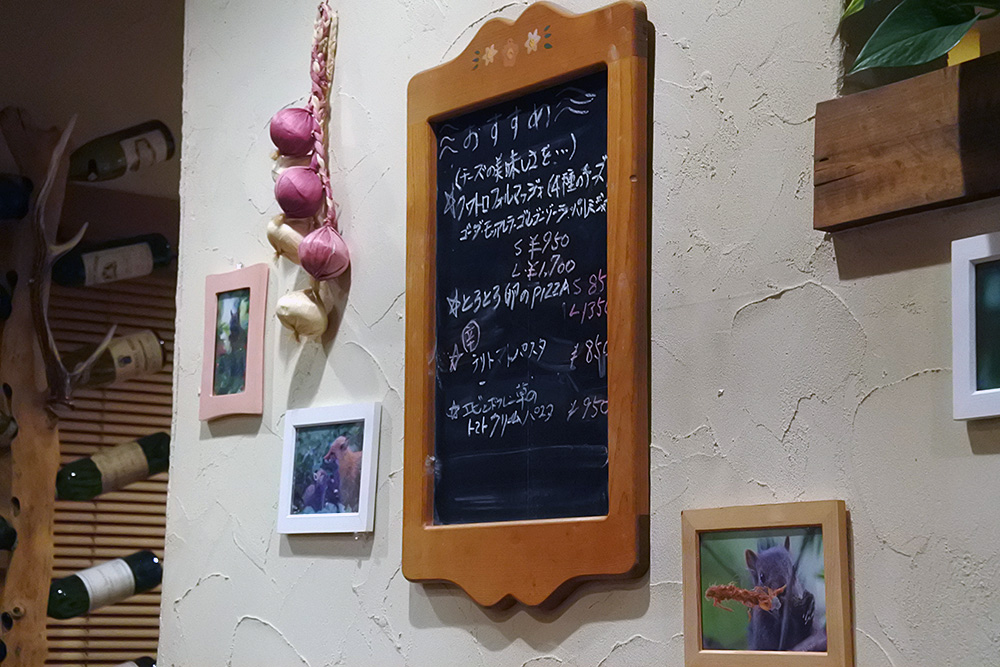 おすすめ
(チーズの美味しさを…)
☆クワトロフォルマッジョ(4種のチーズ
ゴーダ・モッツァレラ・ゴルゴンゾーラ・パルミジャ
S ¥950
L ¥1,700
☆とろとろ卵のPIZZA S 85
L 1350
辛
☆ トマトパスタ ¥850
☆エビとホウレン草の
トマトクリームパスタ ¥950